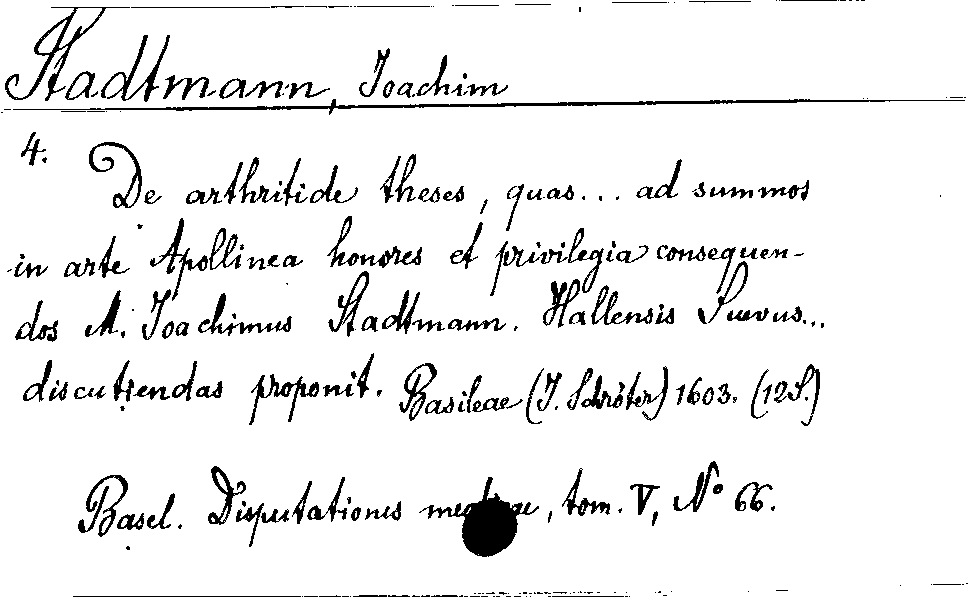 Stadtmann, Joachim
4.
De arthritide theses, quas... ad summos
in arte Apollinea honores et privilegia consequen-
dos M. Joachimus Stadtmann. Hallensis Suevus...
discutiendas proponit. Basileae (J. Schröter) 1603. (12 S.)
Basel. Disputationes medicae, tom. V, No 66.